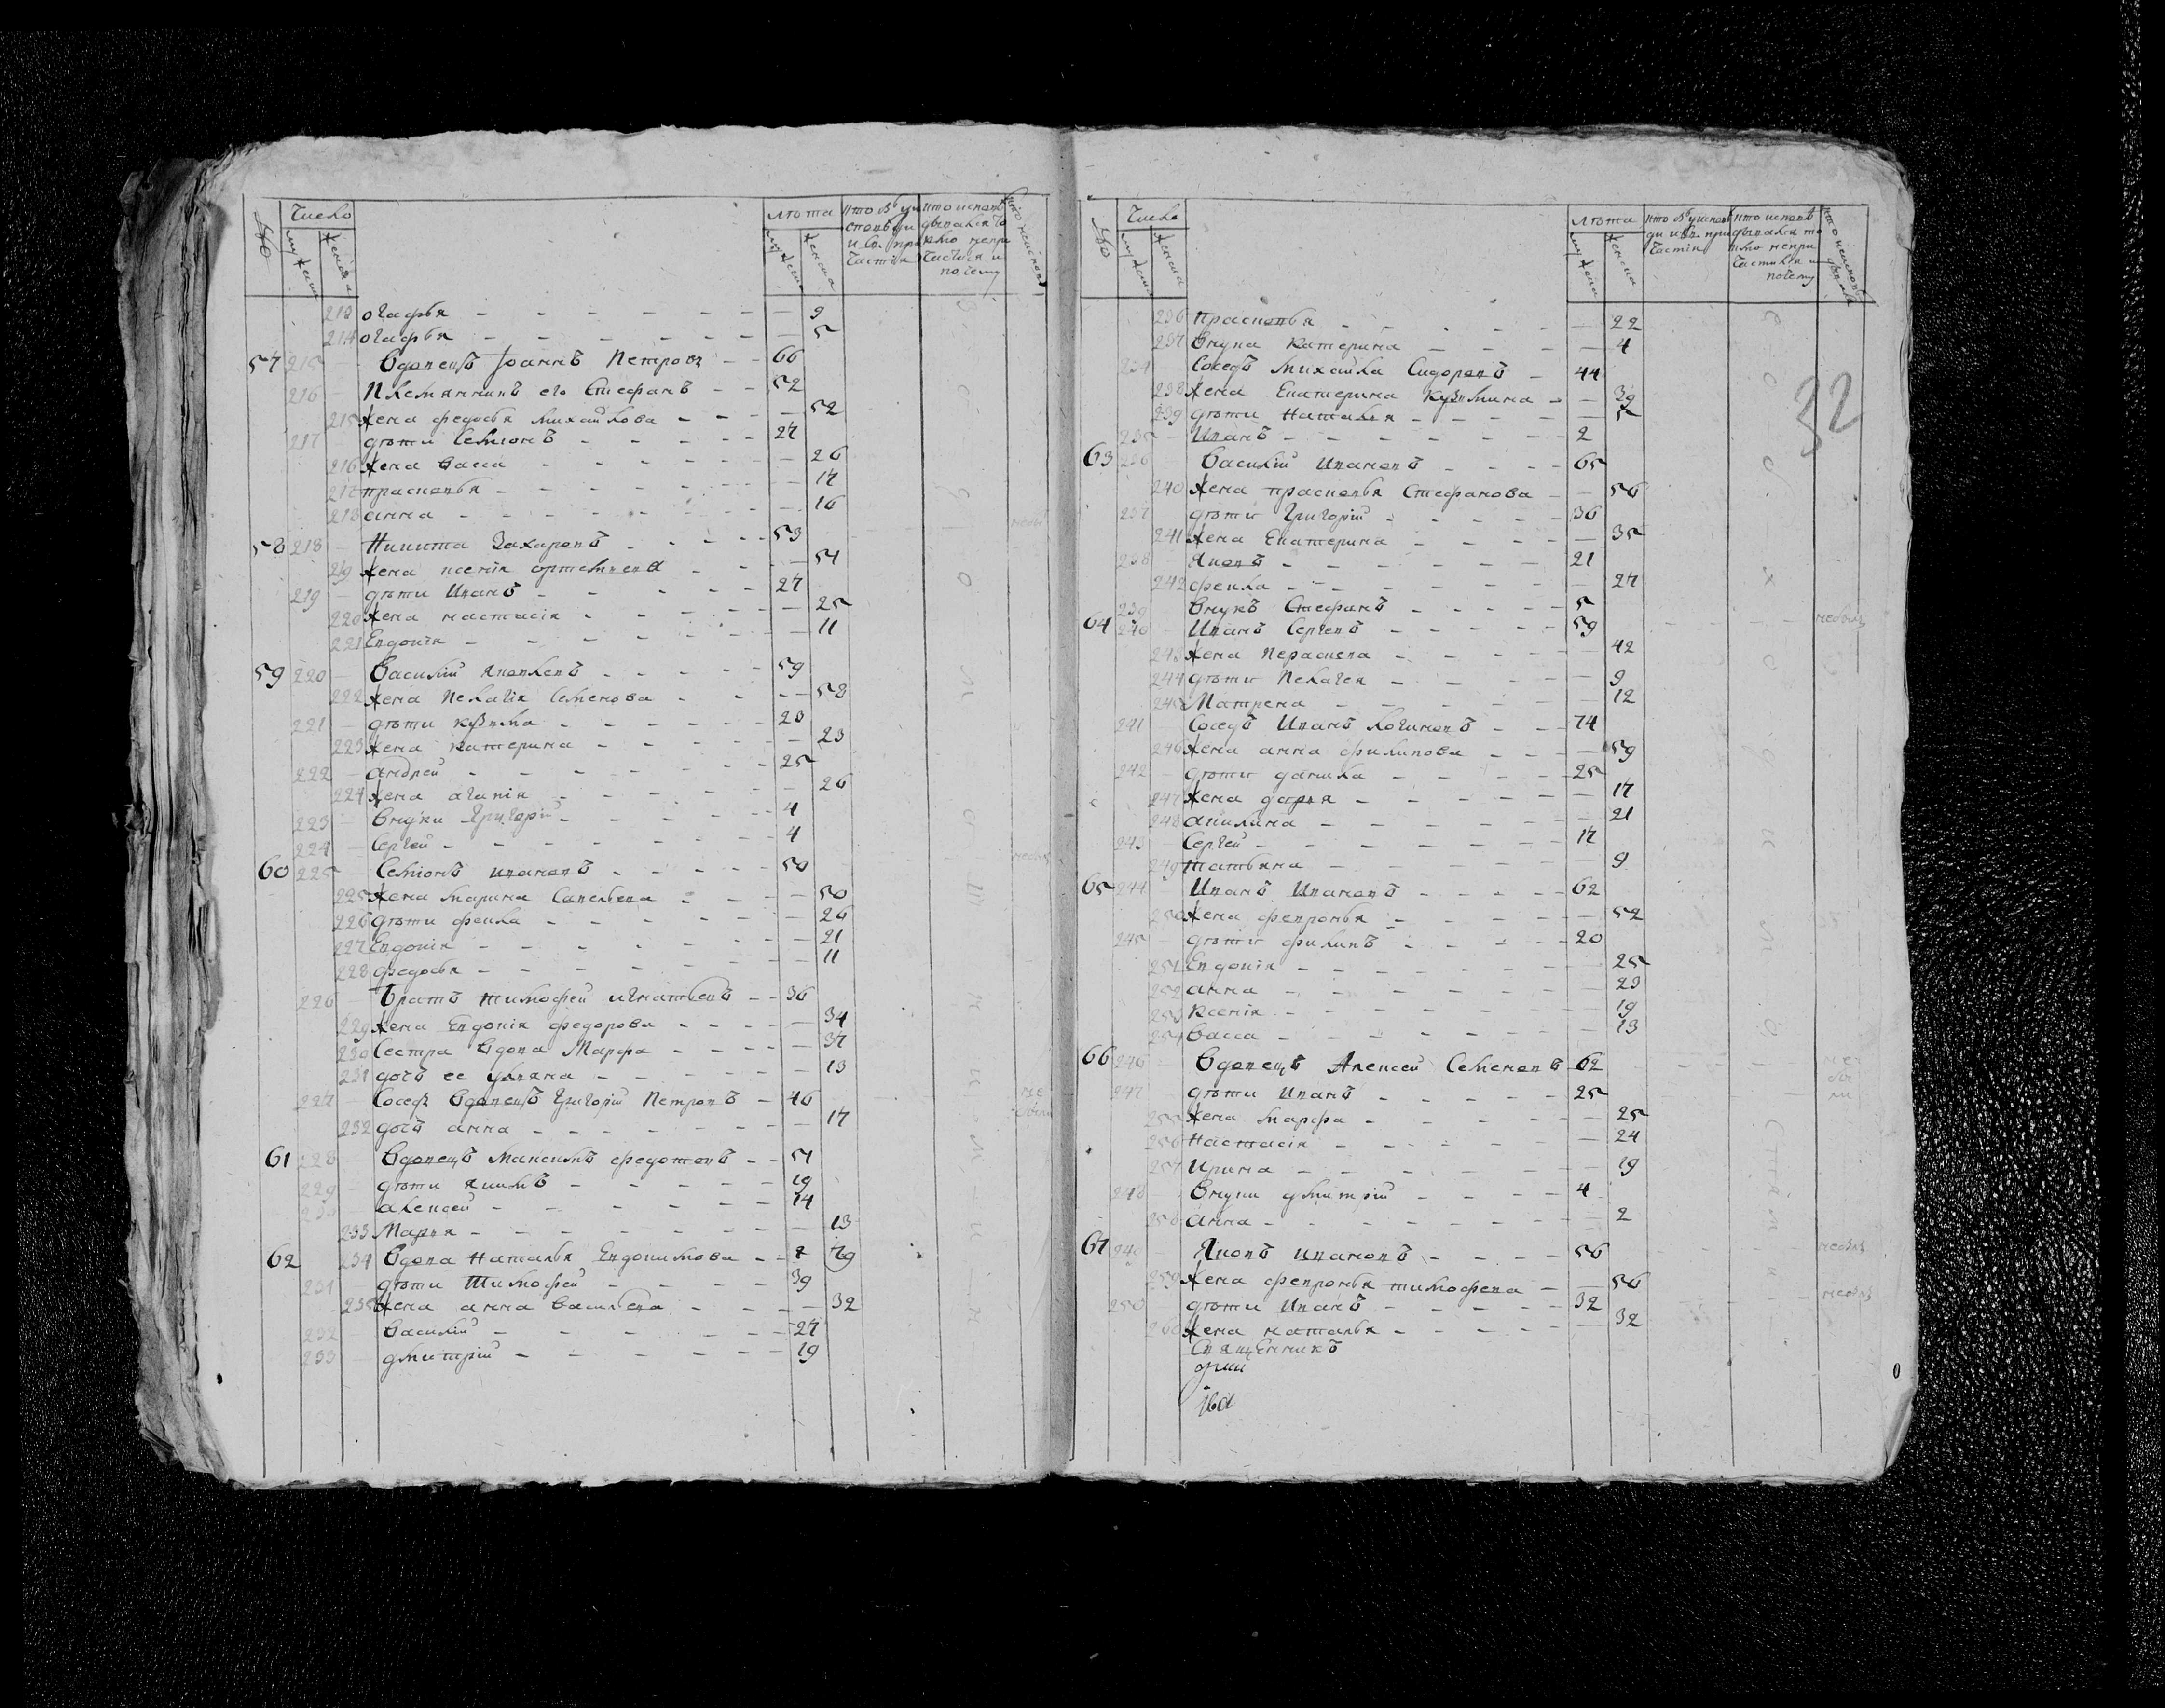 Число
лѣта
213 огафья 9
214 огафья 5
57 215 Вдовецъ Іоаннъ Петровъ 66
216 Племянникъ его Стефанъ 52
215 жена федосья михайлова 52
217 дѣти Семіонъ 27
216 жена васса 26
217 прасковья 17
218 анна 16
58 218 Никита Захаровъ 53
219 жена ксенія артемьева 54
219 дѣти Иванъ 27
220 жена настасія 25
221 Евдокія 11
59 220 Василій Яковлевъ 59
222 жена Пелагія Семенова 58
221 дѣти кузьма 23
223 жена катерина 23
222 андрей 25
224 жена агапія 26
223 внуки Григорій 4
224 Сергей 4
60 225 Семіонъ ивановъ 50
225 жена марина Савельева 50
226 дѣти фекла 26
227 Евдокія 21
228 федосья 11
226 Братъ тимофей игнатьевъ 36
229 жена Евдокія федорова 34
230 Сестра вдова Марфа 37
231 дочь ее ульяна 13
227 Соседъ вдовецъ Григорій Петровъ 46
232 дочь анна 17
61 228 Вдовецъ Максимъ федотовъ 51
229 дѣти якимъ 19
230 алексей 14
233 Марья 13
62 234 Вдова Наталья Евдокимова 79
231 дѣти Тимофей 39
235 жена анна васильева 32
232 василій 27
233 дмитрій 19
Число
лѣта
32
236 прасковья 22
237 внука катерина 4
234 Соседъ михайла Сидоровъ 44
238 жена Екатерина кузьмина 39
239 дѣти наталья 5
235 Иванъ 2
63 236 Василій Ивановъ 65
240 жена прасковья Стефанова 56
237 дѣти Григорій 36
241 жена Екатерина 35
238 Яковъ 21
242 фекла 27
239 внукъ Стефанъ 5
64 240 Иванъ Сергевъ 59
243 жена Параскева 42
244 дѣти Пелагея 9
245 Матрена 12
241 Соседъ Иванъ логиновъ 74
246 жена анна филипова 59
242 дѣти данила 25
247 жена дарья 17
248 акилина 21
243 Сергей 17
249 татьяна 9
65 244 Иванъ Ивановъ 62
250 жена февронья 52
245 дѣти филипъ 20
251 Евдокія 25
252 анна 23
253 ксенія 19
254 васса 13
66 246 Вдовецъ Алексей Семеновъ 62
247 дѣти Иванъ 25
255 жена марфа 25
256 настасія 24
257 ирина 19
248 внуки дмитрій 4
258 анна 2
67 249 Яковъ ивановъ 56
259 жена февронья тимофеева 56
250 дѣти Иванъ 32
260 жена наталья 32
Священникъ